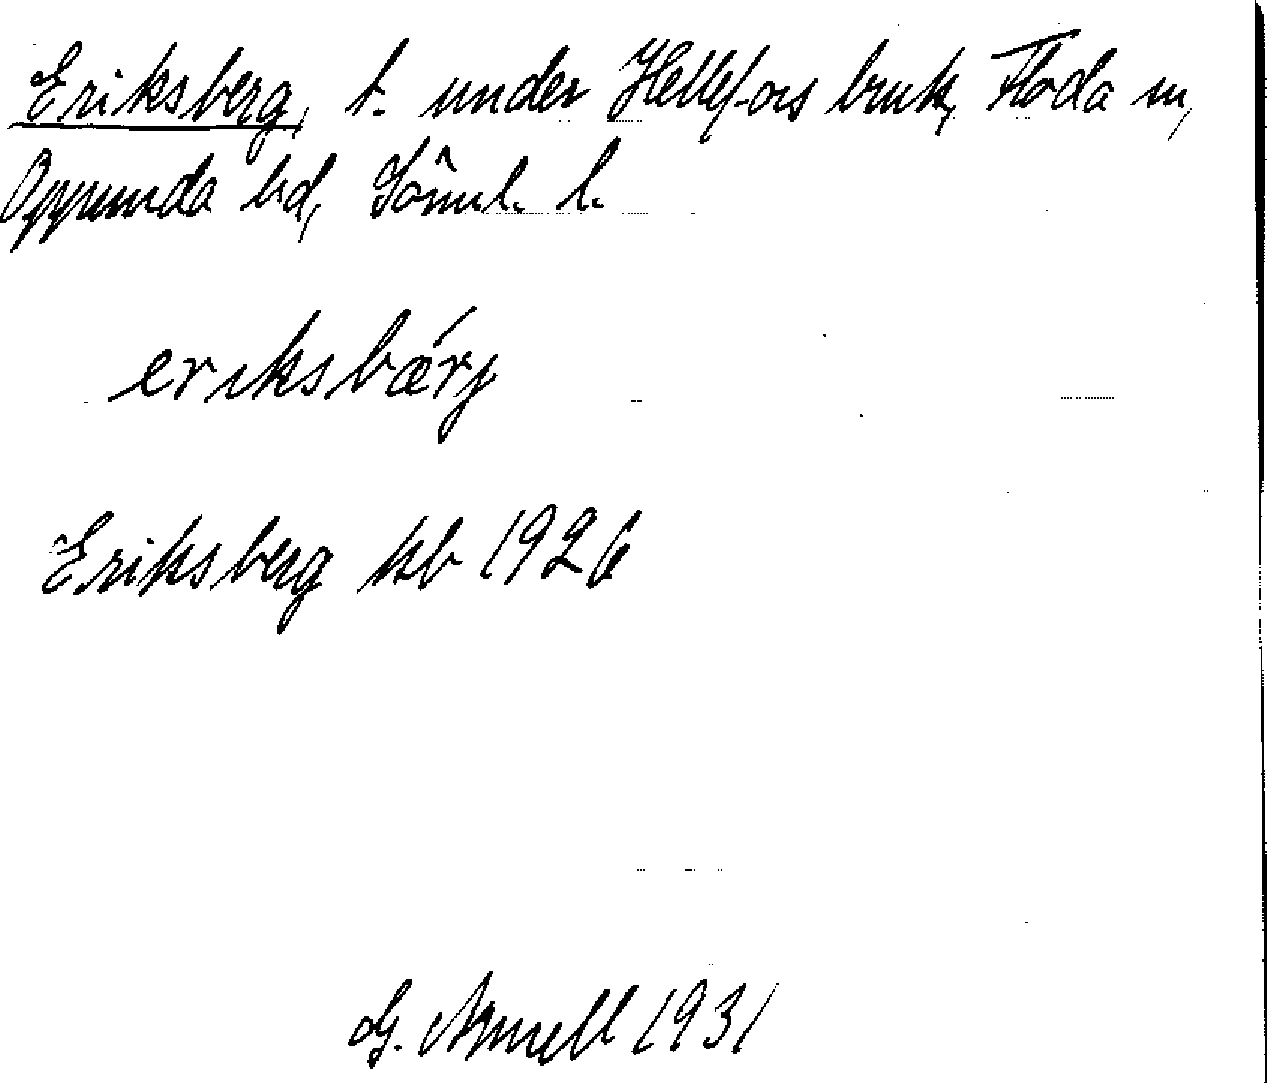 Eriksberg, t. under Hellefors bruk, Floda sn,
Oppunda hd, Söml. l.
eriksbǽrj
Eriksberg kb 1926
G. Arnell 1931